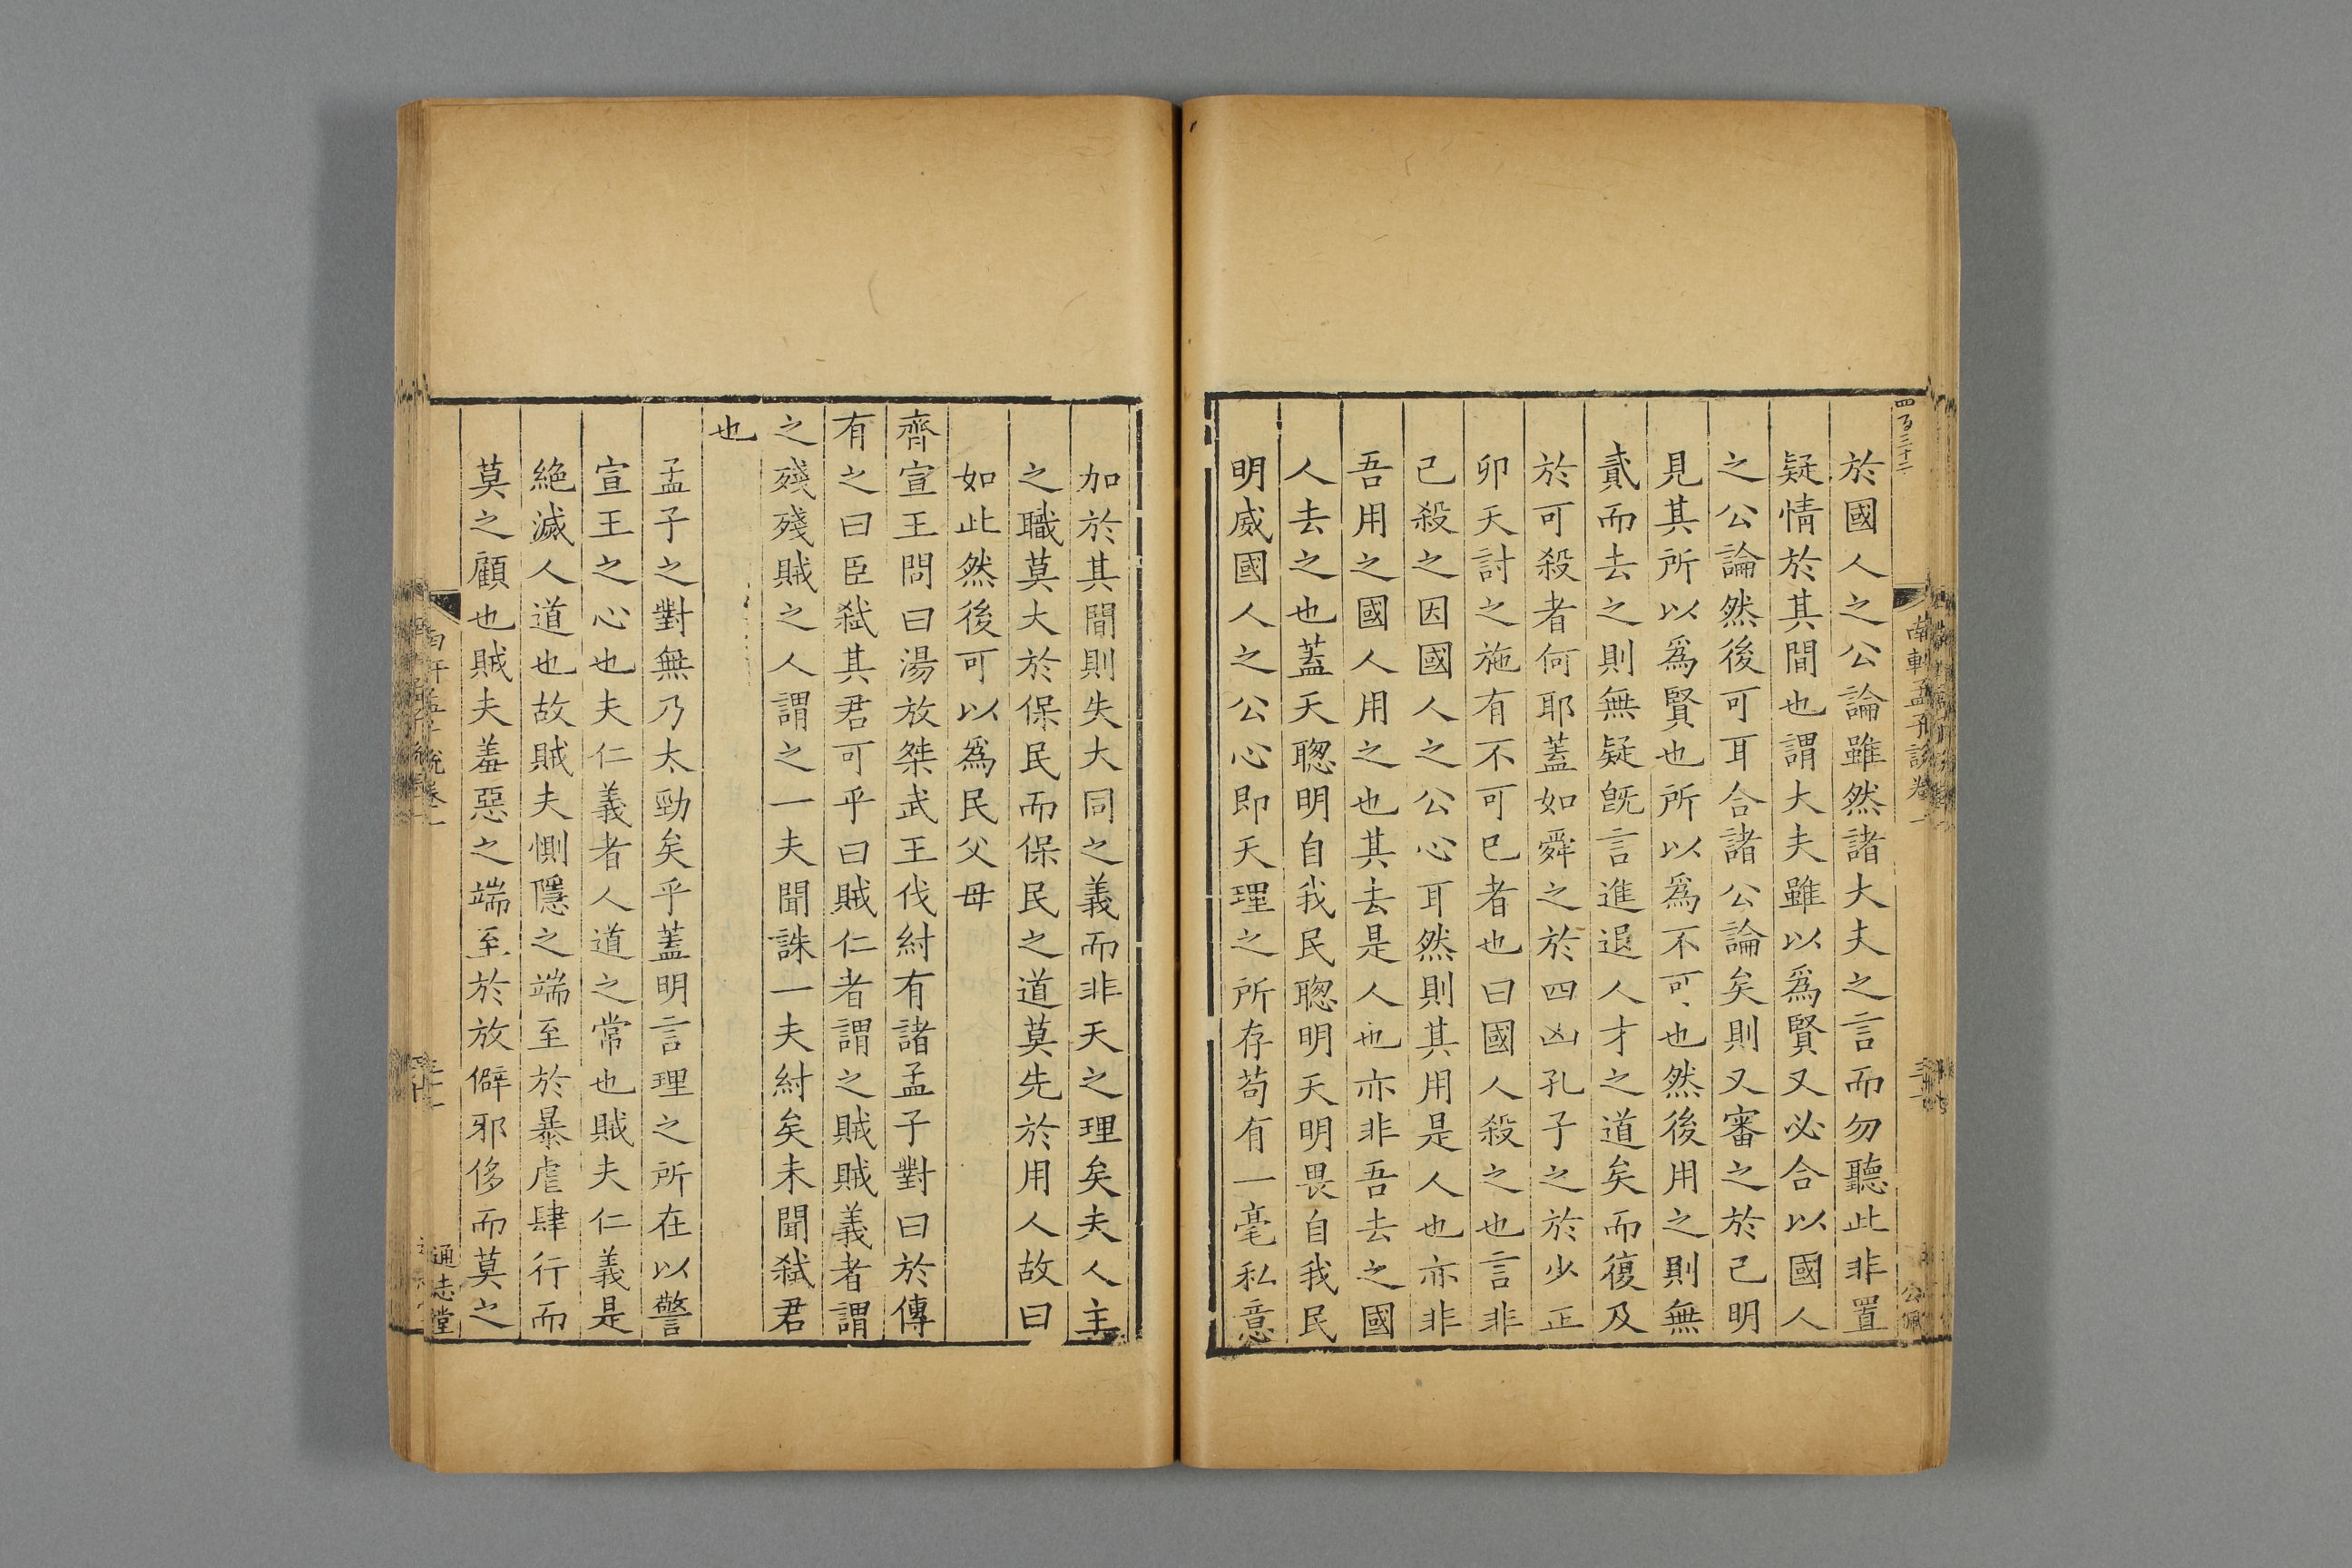 四百三十二
南軒孟子說卷一
於國人之公論雖然諸大夫之言而勿聽此非置
疑情於其間也謂大夫雖以爲賢又必合以國人
之公論然後可耳合諸公論矣則又審之於己明
見其所以爲賢也所以爲不可也然後用之則無
貳而去之則無疑旣言進退人才之道矣而復及
於可殺者何耶蓋如舜之於四凶孔子之於少正
卯天討之施有不可已者也曰國人殺之也言非
己殺之因國人之公心耳然則其用是人也亦非
吾用之國人用之也其去是人也亦非吾去之國
人去之也蓋天聦明自我民聦明天明畏自我民
明威國人之公心卽天理之所存苟有一毫私意
加於其間則失大同之義而非天之理矣夫人主
之職莫大於保民而保民之道莫先於用人故曰
如此然後可以爲民父母
齊宣王問曰湯放桀武王伐紂有諸孟子對曰於傳
有之曰臣弑其君可乎曰賊仁者謂之賊賊義者謂
之殘殘賊之人謂之一夫聞誅一夫紂矣未聞弑君
也
孟子之對無乃太勁矣乎蓋明言理之所在以警
宣王之心也夫仁義者人道之常也賊夫仁義是
絶滅人道也故賊夫惻隱之端至於暴虐肆行而
莫之顧也賊夫羞惡之端至於放僻邪侈而莫之
通志堂